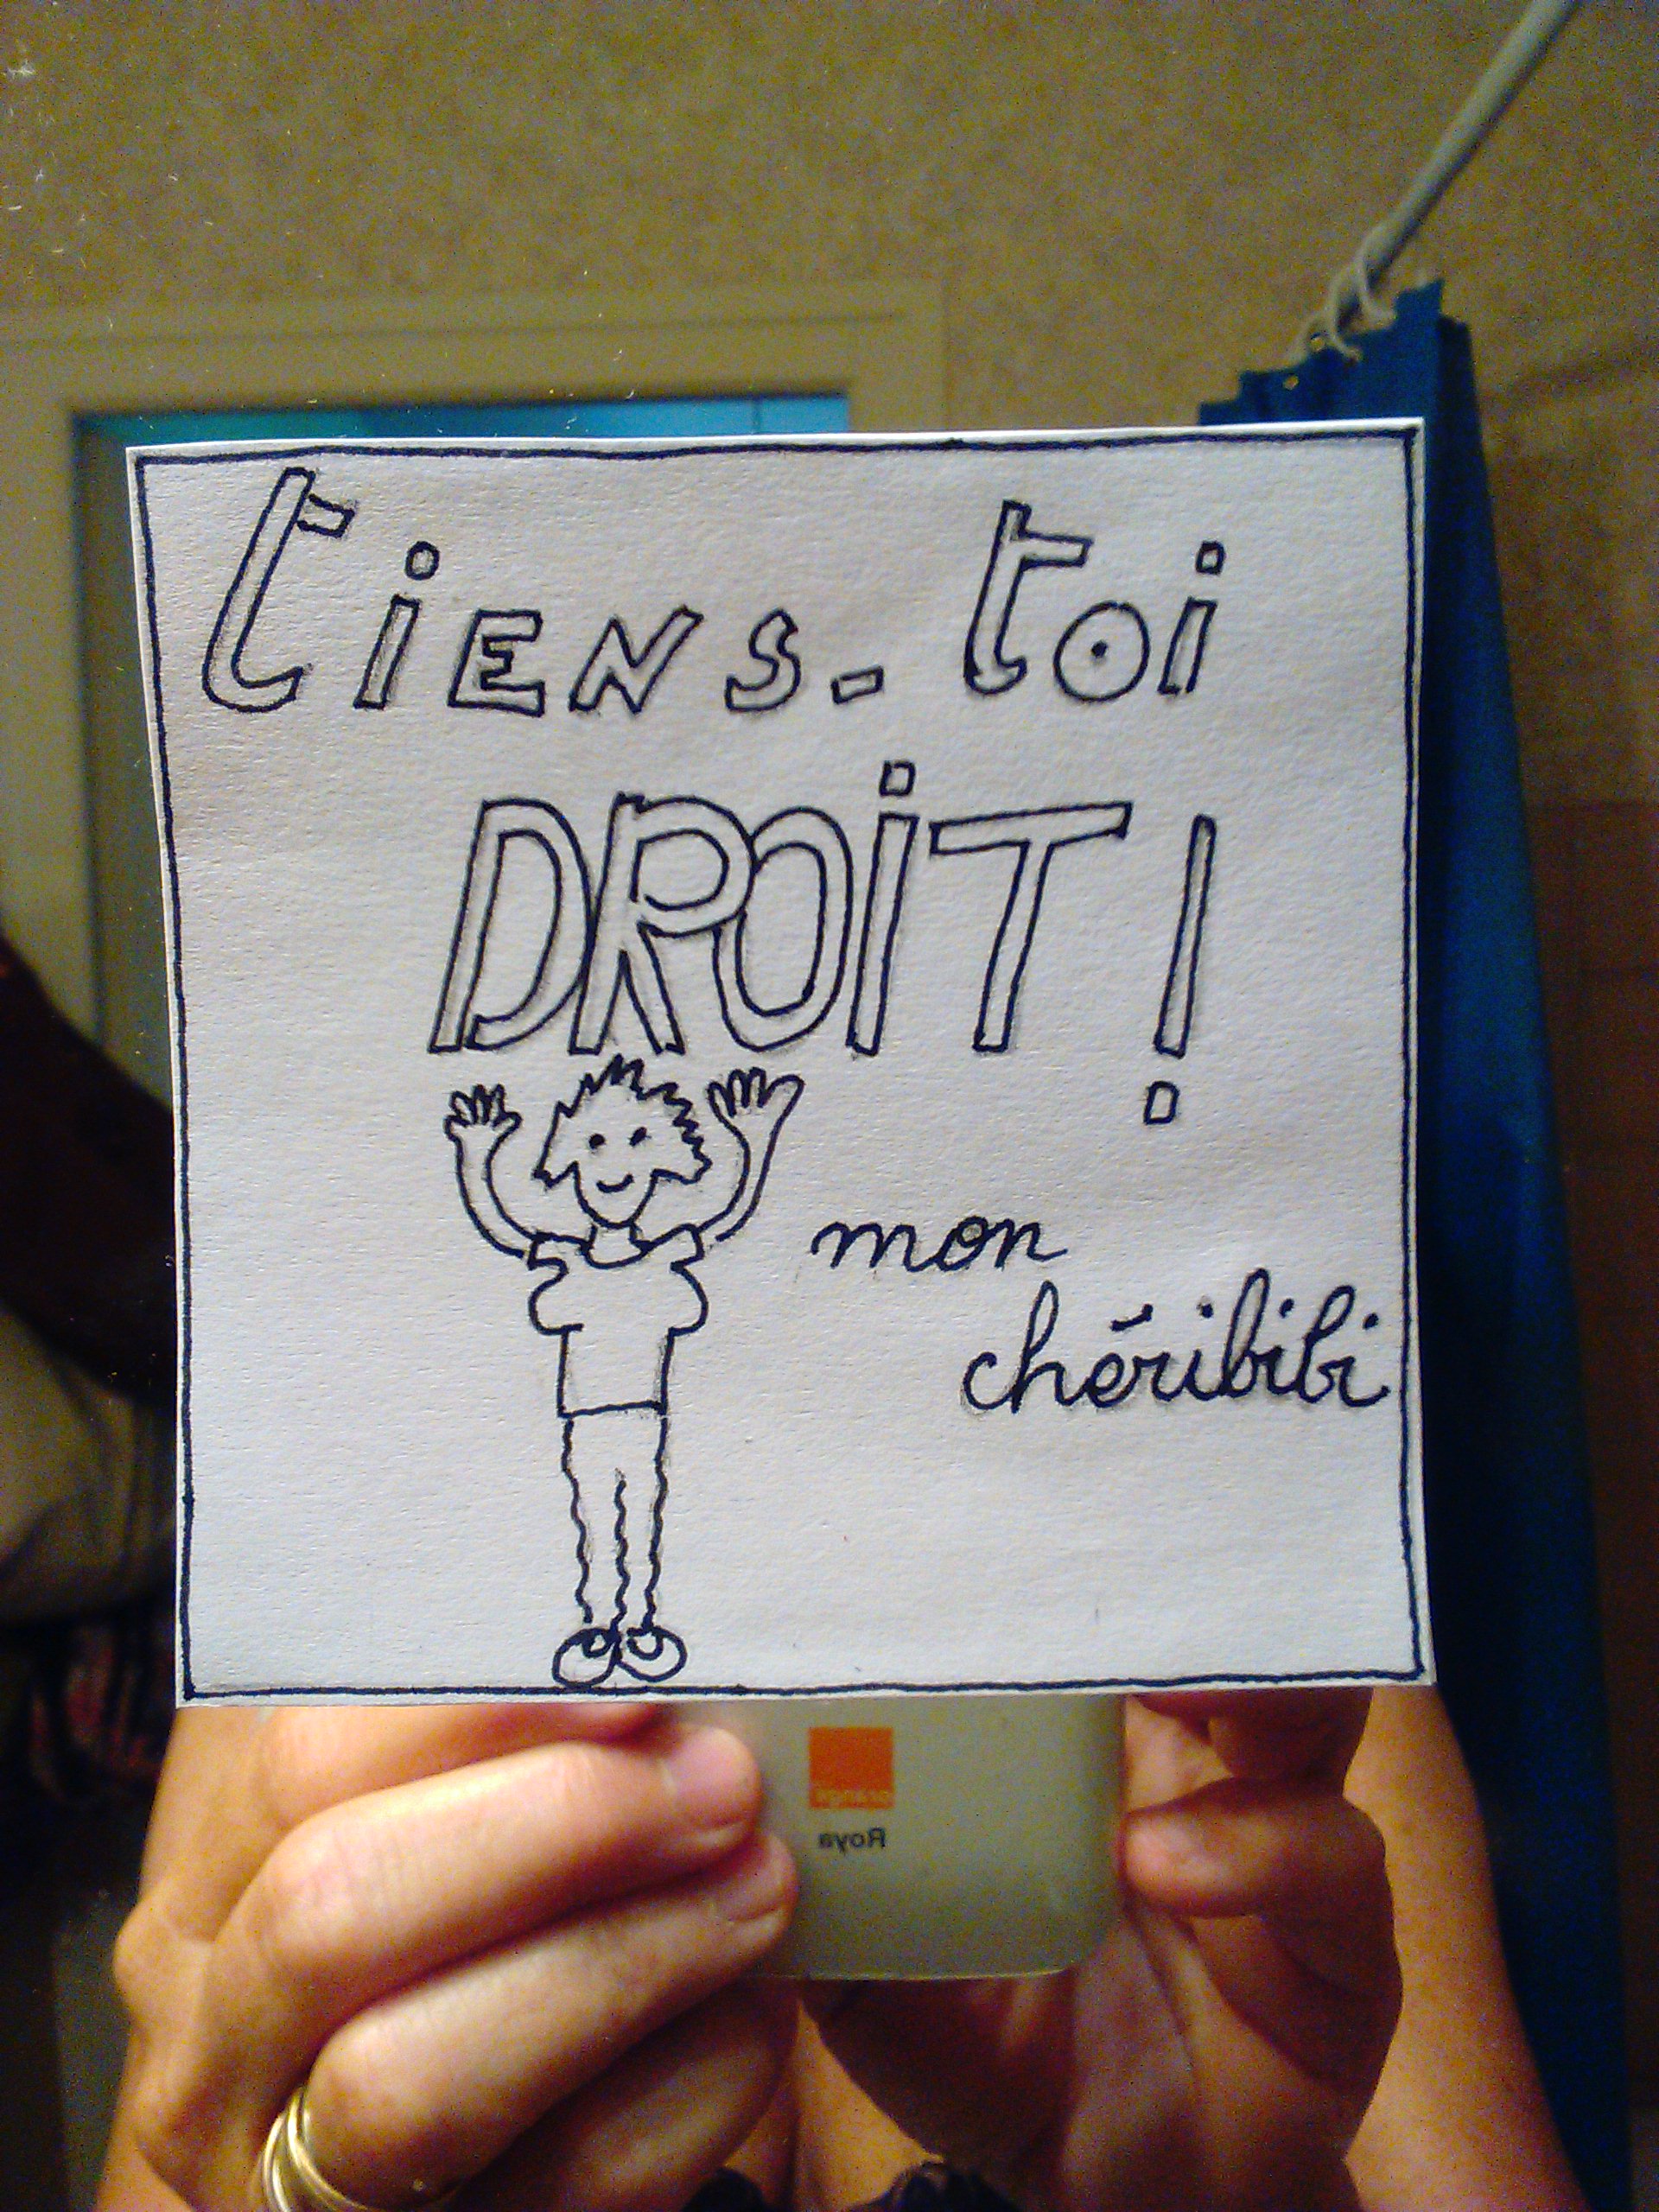 tiENS-toi
DROiT !
mon
chéribibi
orange
Roya